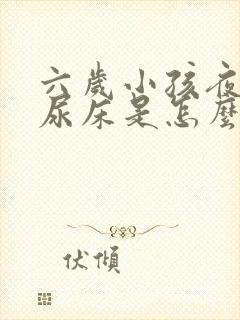 六歲小孩夜
尿床是怎麼
伏傾